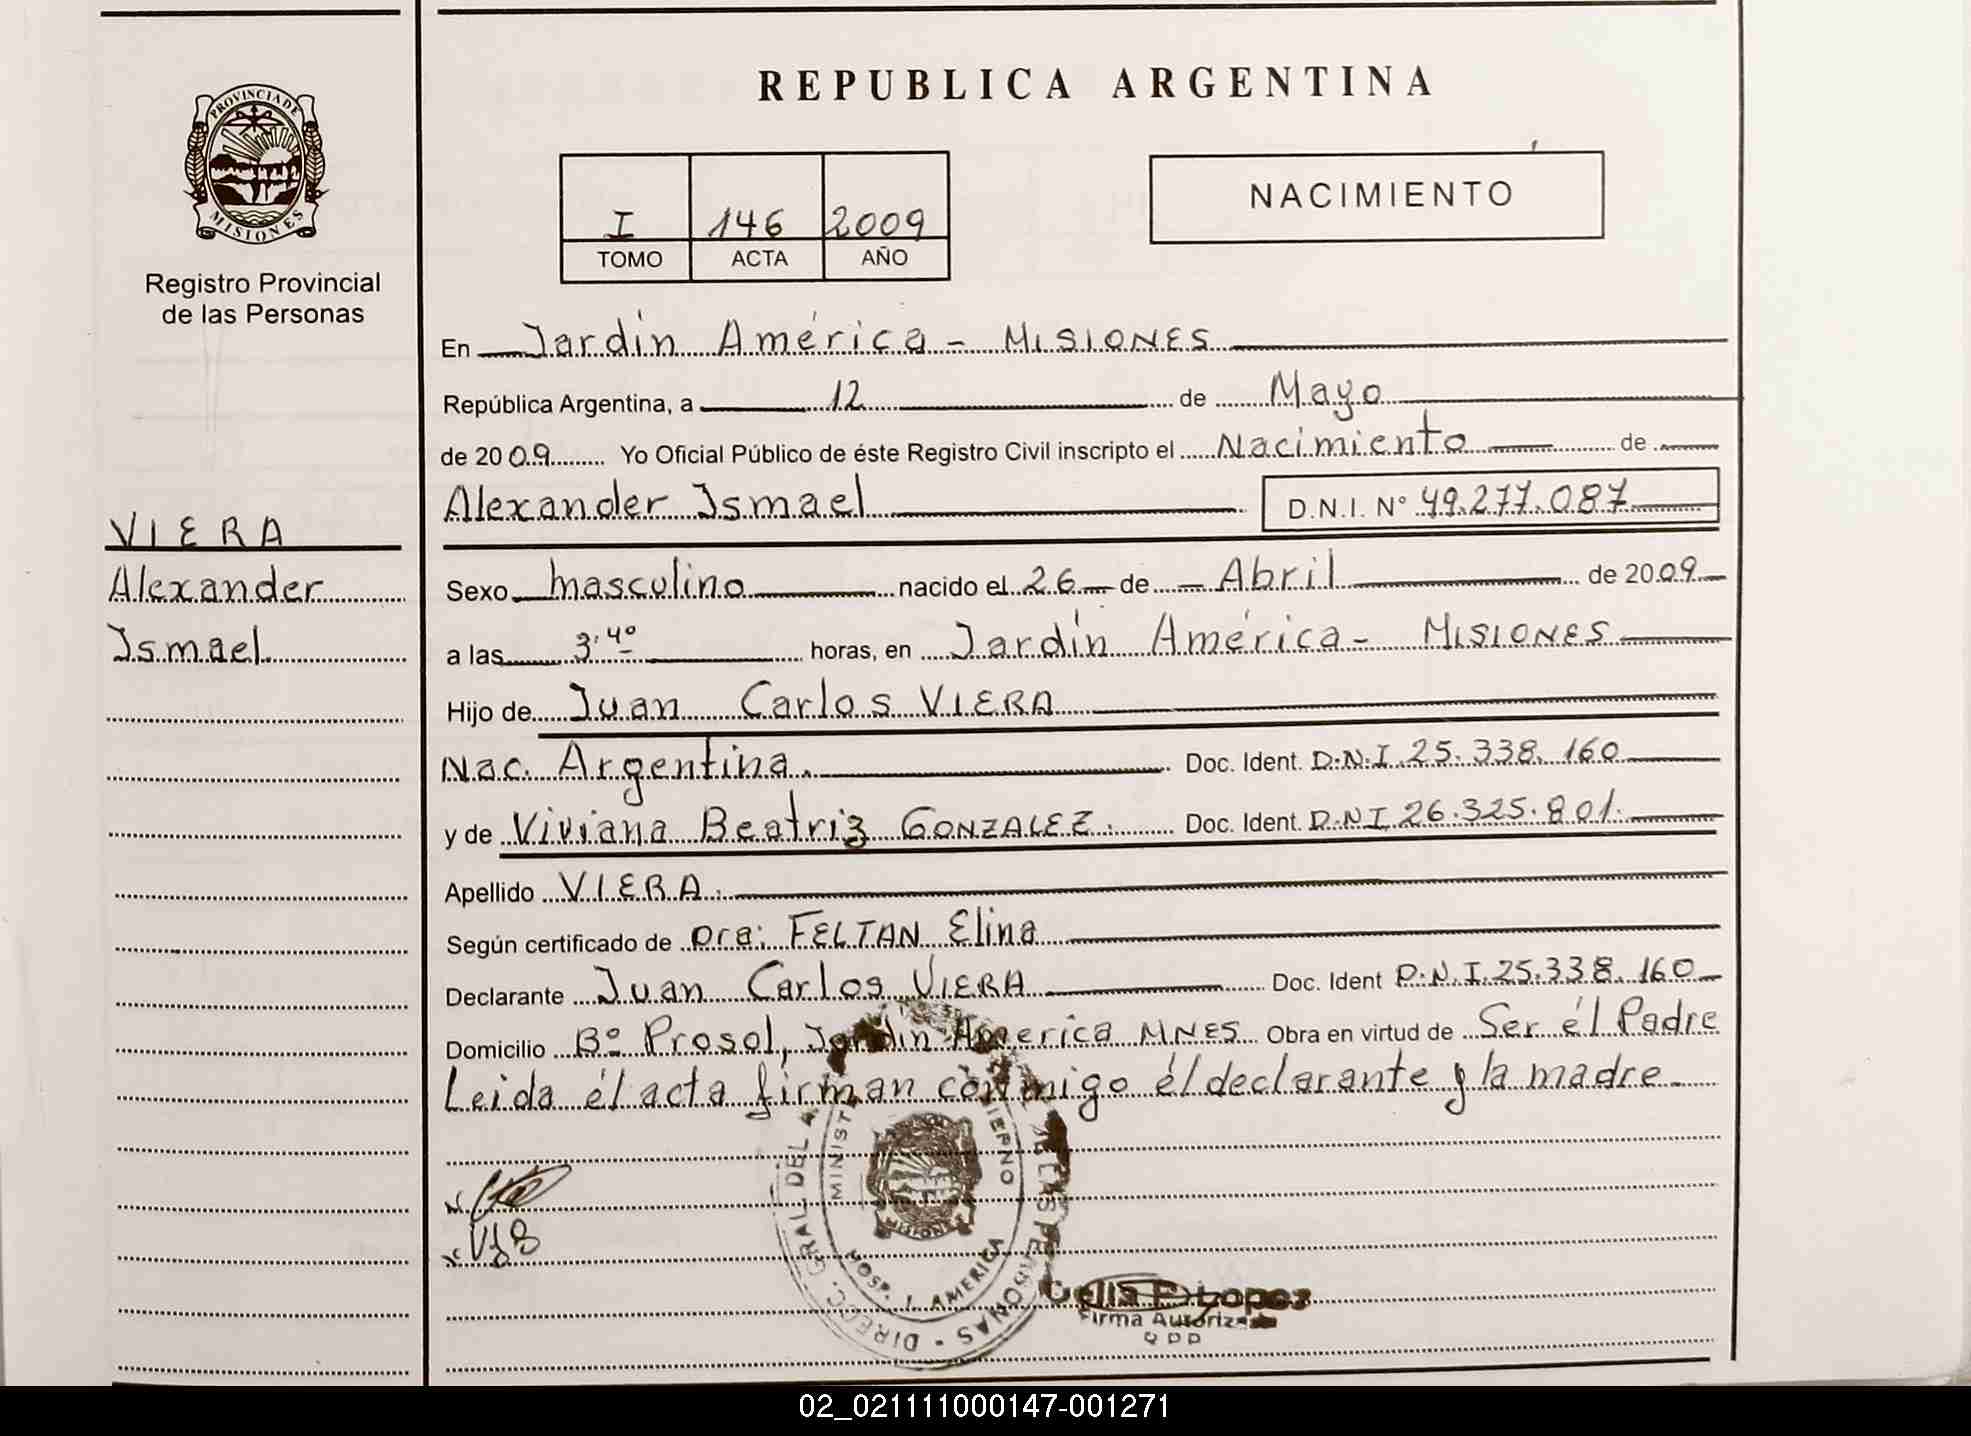 REPUBLICA ARGENTINA
PROVINCIA DE
MISIONES
Registro Provincial
de las Personas
I 146 2009
TOMO ACTA AÑO
NACIMIENTO
En Jardín América - MISIONES
República Argentina, a 12 de Mayo
de 2009 Yo Oficial Público de éste Registro Civil inscripto el Nacimiento de
Alexander Ismael D.N.I. Nº 49.277.087
VIERA
Alexander
Ismael
Sexo masculino nacido el 26 de Abril de 2009
a las 3:40 horas, en Jardín América - MISIONES
Hijo de Juan Carlos VIERA
Nac. Argentina. Doc. Ident. D.N.I. 25.338.160
y de Viviana Beatriz GONZALEZ. Doc. Ident. D.N.I 26.325.801.
Apellido VIERA.
Según certificado de Dra: FELTAN Elina
Declarante Juan Carlos VIERA Doc. Ident D.N.I. 25.338.160
Domicilio Bº Prosol, Jardín America MNES Obra en virtud de Ser él Padre
Leida él acta firman conmigo él declarante y la madre
DIRECC. GRAL. DEL PERSONAS
MINIST
HOSP. J. AMERICA
MISIONES
Celia F. Lopez
Firma Autoriz
02_021111000147-001271